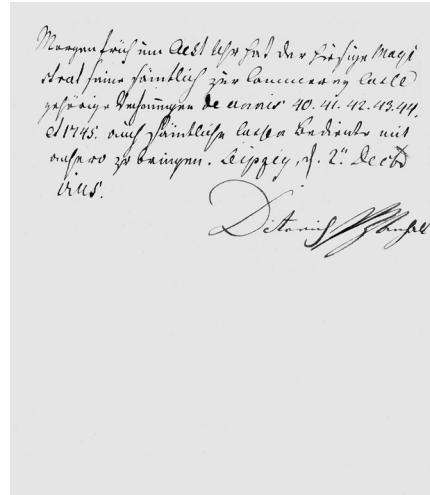 Morgen früh um Acht Uhr hat der hiesige Magi
strat seine sämtlich zur Cammerey Casse
gehörige Rechnungen de annis 40. 41. 42. 43. 44.
et 1745. auch sämtliche Cassen Bediente mit
anhero zu bringen. Leipzig, d. 2. Decb
1745.
Dieterich